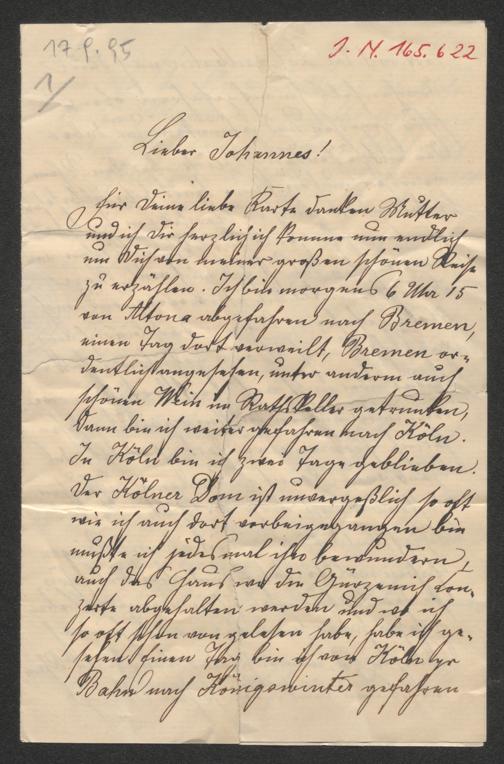 17.9.95
J. N. 165.622
1/
Lieber Johannes!
Für Deine liebe Karte danken Mutter
und ich Dir herzlich ich komme nun endlich
um Dich von meiner großen schönen Reise
zu erzählen. Ich bin morgens 6 Uhr 15
von Altona abgefahren nach Bremen,
einen Tag dort verweilt, Bremen or-
dentlich angesehen, unter anderm auch
schönen Wein im Rathskeller getrunken,
dann bin ich weiter gefahren nach Köln.
In Köln bin ich zwei Tage geblieben.
Der Kölner Dom ist unvergeßlich so oft
wie ich auch dort vorbeigegangen bin
mußte ich jedesmal ihn bewundern,
auch das Haus wo die Gürzenich Con-
zerte abgehalten werden und wo ich
so oft schon von gelesen habe, habe ich ge-
sehen. Einen Tag bin ich von Köln pr
Bahn nach Königswinter gefahren